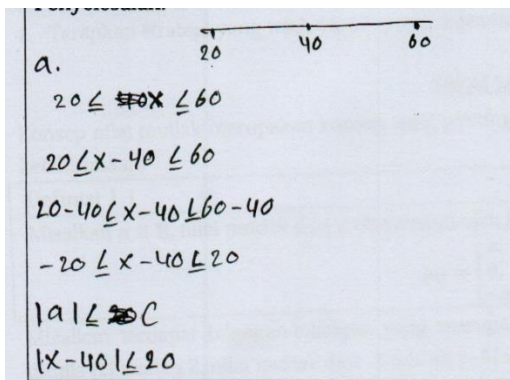 20 40 60
a.
20 ≤ x ≤ 60
20 ≤ x - 40 ≤ 60
20 - 40 ≤ x - 40 ≤ 60 - 40
- 20 ≤ x - 40 ≤ 20
|a| ≤ C
|x - 40| ≤ 20